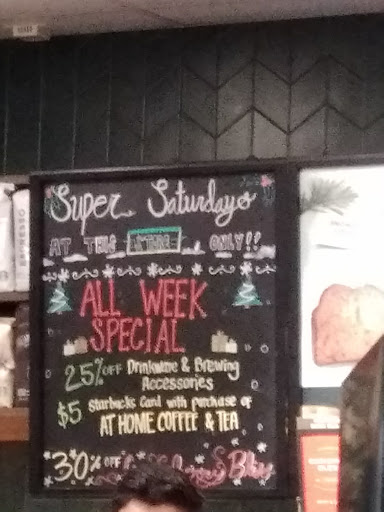 Super Saturdays
AT THIS STORE ONLY!!
ALL WEEK
SPECIAL
25% OFF Drinkware & Brewing
Accessories
$5 Starbucks Card with purchase of
AT HOME COFFEE & TEA
30% OFF
ESPRESSO